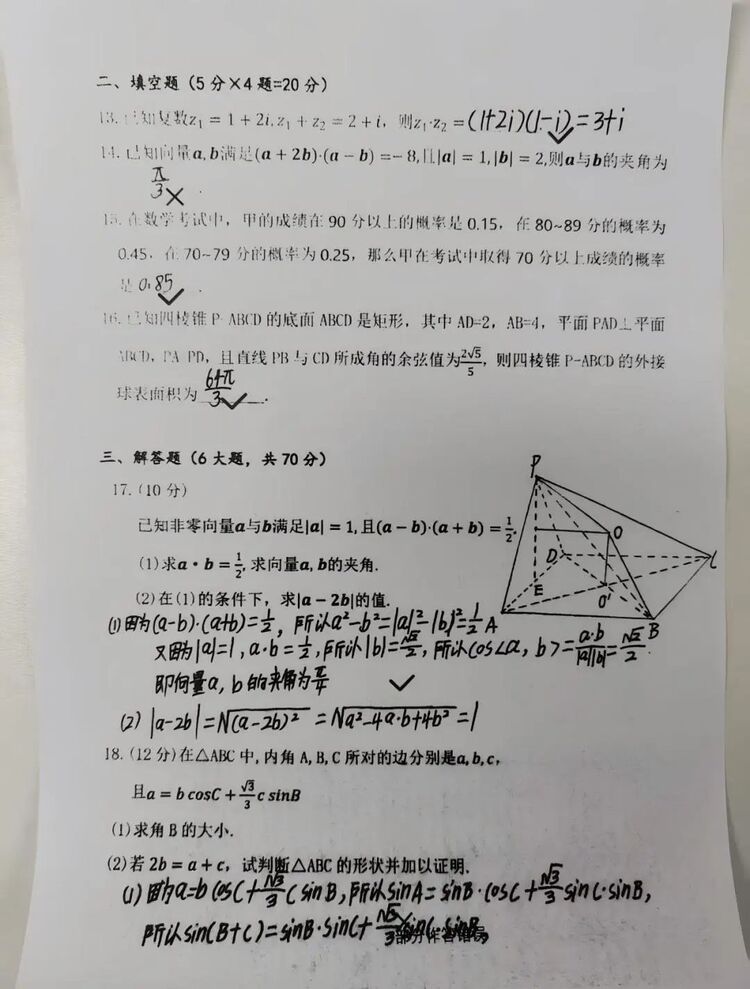 二、填空题（5分×4题=20分）
13. 已知复数z₁ = 1 + 2i, z₁ + z₂ = 2 + i，则z₁·z₂ = (1+2i)(1-i)=3+i
14. 已知向量a, b满足(a + 2b)·(a − b) = −8, 且|a| = 1, |b| = 2, 则a与b的夹角为
π/3 ×.
15. 在数学考试中，甲的成绩在 90 分以上的概率是 0.15，在 80~89 分的概率为
0.45，在 70~79 分的概率为 0.25，那么甲在考试中取得 70 分以上成绩的概率
是 0.85 ✓.
16. 已知四棱锥 P-ABCD 的底面 ABCD 是矩形，其中 AD=2，AB=4，平面 PAD⊥平面
ABCD，PA=PD，且直线 PB 与 CD 所成角的余弦值为2√5/5，则四棱锥 P-ABCD 的外接
球表面积为 64π/3 ✓.
三、解答题（6 大题，共 70 分）
17.（10 分）
已知非零向量a与b满足|a| = 1, 且(a − b)·(a + b) = 1/2.
(1)求a·b = 1/2, 求向量a, b的夹角.
(2)在(1)的条件下，求|a − 2b|的值.
P
O
D
C
E
O'
A
B
(1)因为(a-b)·(a+b)=1/2，所以a²-b²=|a|²-|b|²=1/2
又因为|a|=1, a·b=1/2, 所以|b|=√2/2, 所以cos<a, b>=a·b/|a||b|=√2/2.
即向量a, b的夹角为π/4 ✓
(2) |a-2b|=√(a-2b)² =√a²-4a·b+4b² =1
18. (12 分)在△ABC 中, 内角 A, B, C 所对的边分别是a, b, c,
且a = b cosC + √3/3 c sinB
(1)求角 B 的大小.
(2)若 2b = a + c，试判断△ABC 的形状并加以证明.
(1) 因为a=b cosC+√3/3 c sinB, 所以sinA=sinB·cosC+√3/3 sinC·sinB,
所以sin(B+C)=sinB·sinC+√3/3 sinC·sinB,
部分作答错误